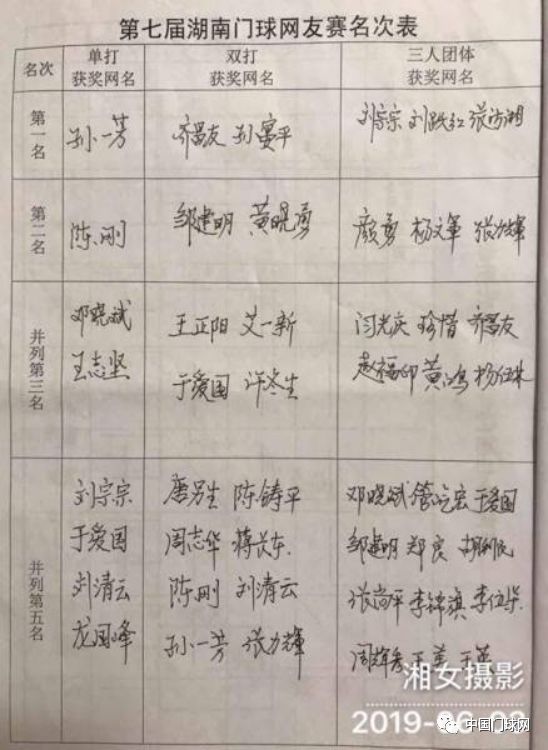 第七届湖南门球网友赛名次表
名次 单打 获奖网名 双打 获奖网名 三人团体 获奖网名
第一名 孙一芳 齐昌友 孙宴平 刘宗宗 刘跃红 张访湘
第二名 陈刚 邹建明 黄晓勇 颜勇 杨文军 张力辉
并列第三名 邓晓斌 王正阳 艾一新 闫光庆 珍惜 齐昌友
王志坚 于爱国 许冬生 赵福印 黄鸿
并列第五名 刘宗宗 唐另生 陈铸平 邓晓斌 于爱国
于爱国 周志华 蒋长东 邹建明 郑良
刘清云 陈刚 刘清云 张尚平 李锦旗
龙国峰 孙一芳 张力辉 周辉
湘女摄影
2019-06-02
中国门球网